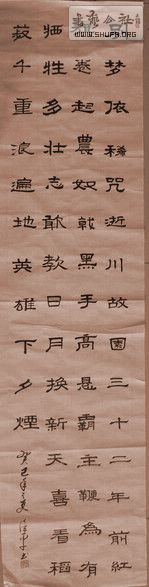 書藝公社
WWW.SHUFA.ORG
梦依稀咒逝川故園三十二年前紅
卷起農奴戟黑手高悬霸主鞭為有
牺牲多壮志敢教日月换新天喜看稻
菽千重浪遍地英雄下夕煙
癸巳年之夏